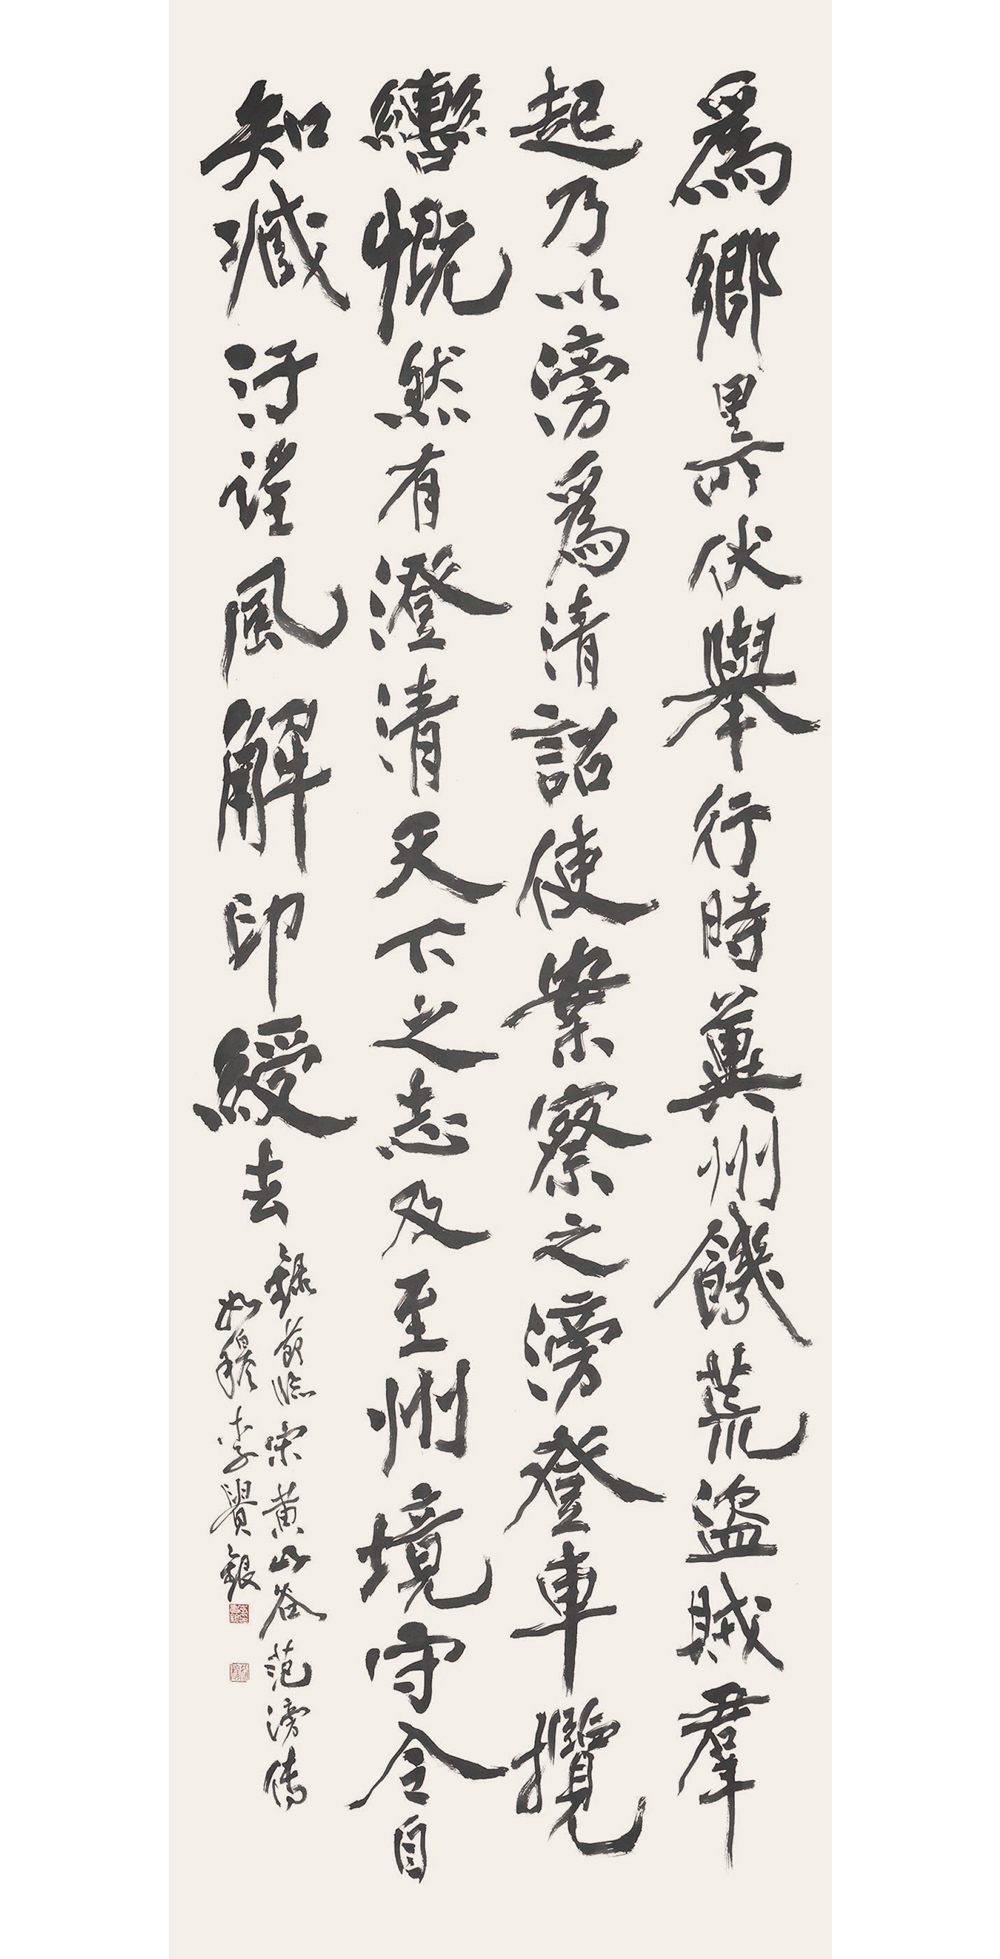 為鄉里所伏舉行時冀州饑荒盜賊羣
起乃以滂為清詔使案察之滂登車攬
轡慨然有澄清天下之志及至州境守令自
知臧汙望風解印綬去
錄節臨宋黃山谷范滂傳
如穆李貴銀